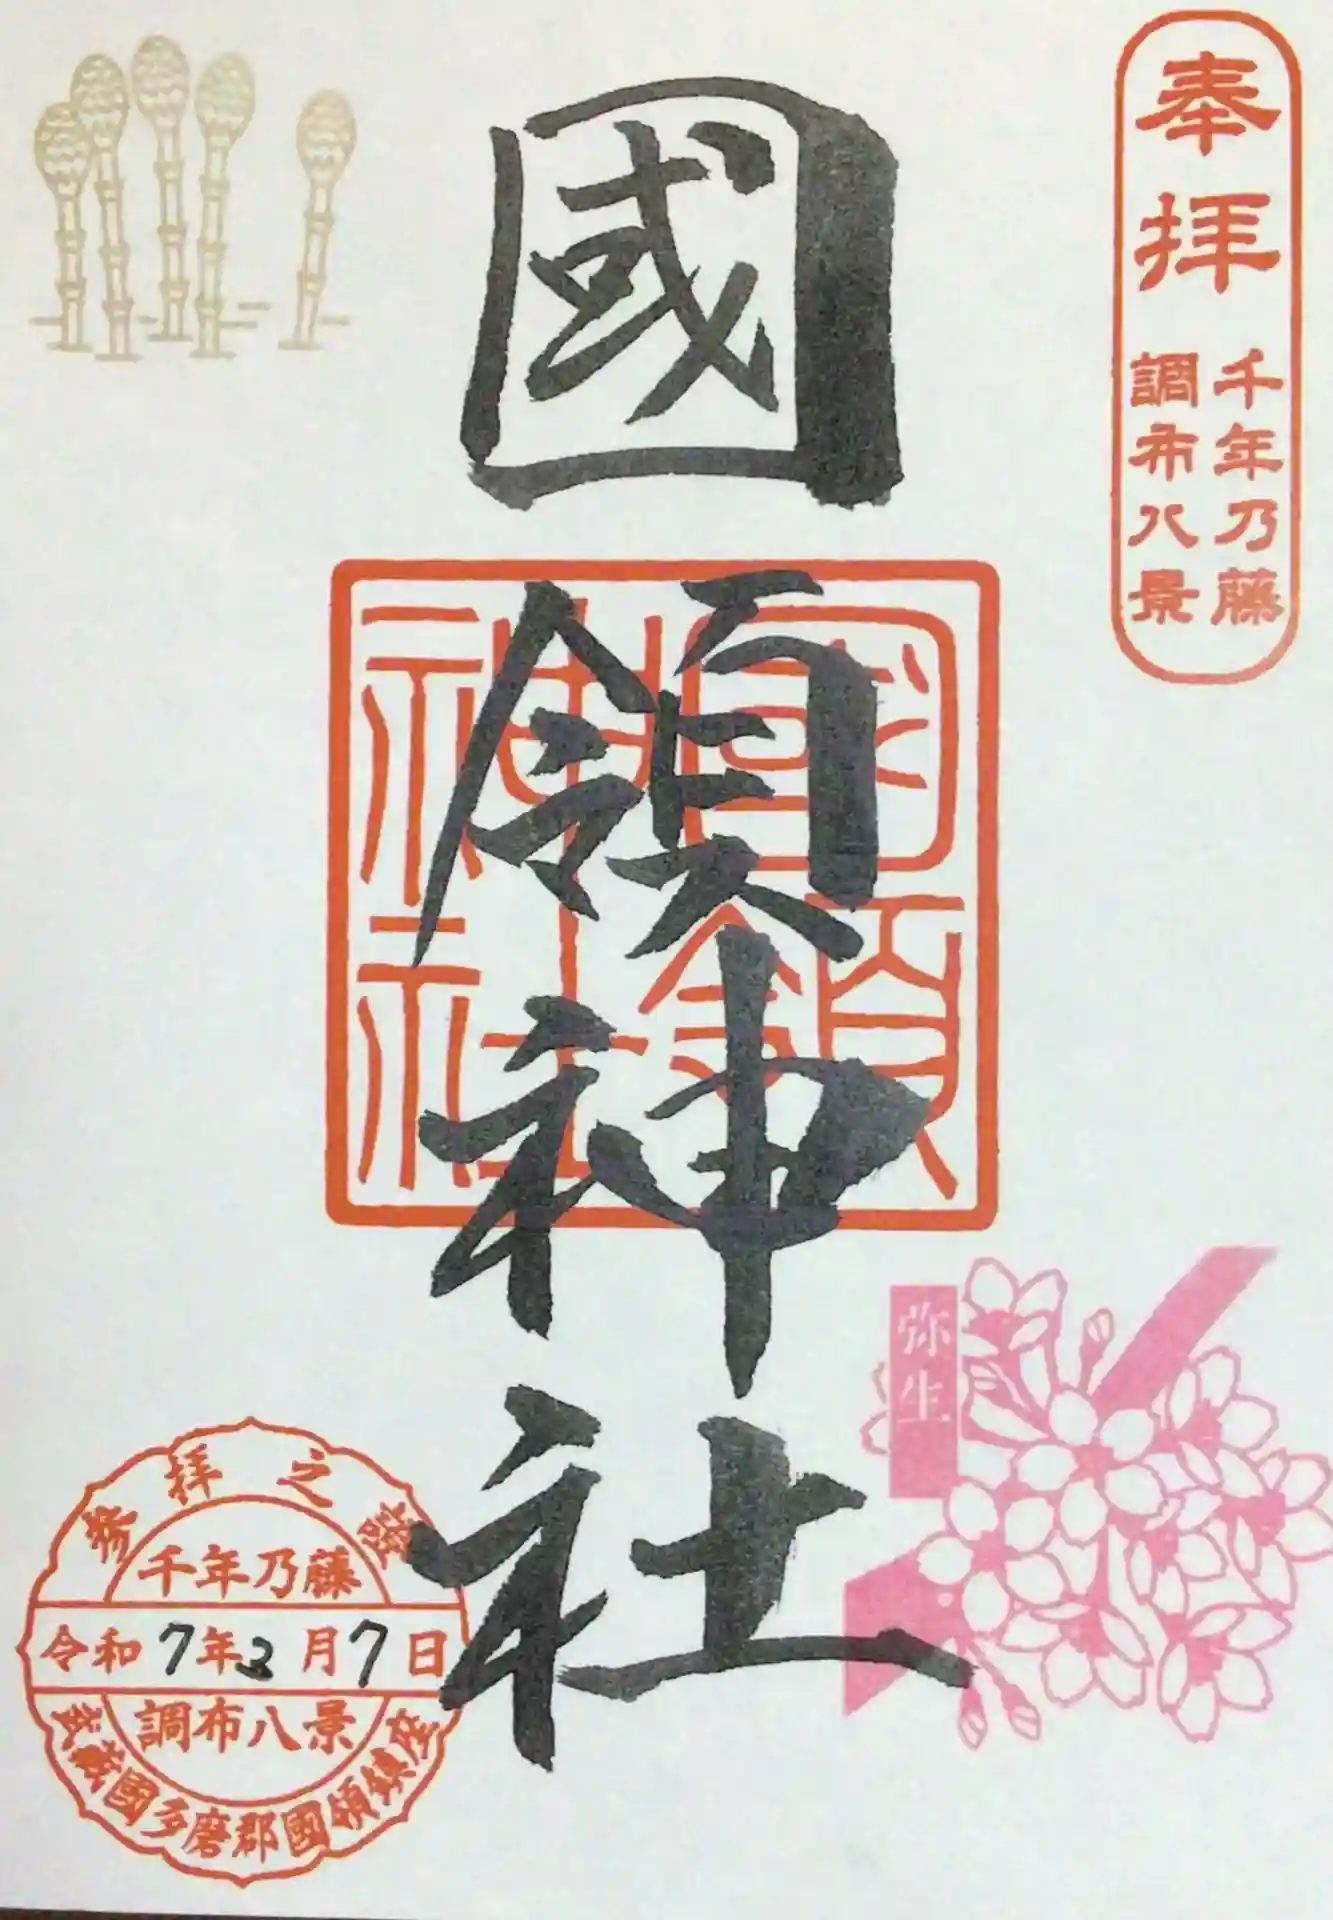 奉拝
千年乃藤
調布八景
國領神社
國領
神社
弥生
参拝之證
千年乃藤
令和7年3月7日
調布八景
武蔵國多磨郡國領鎮座